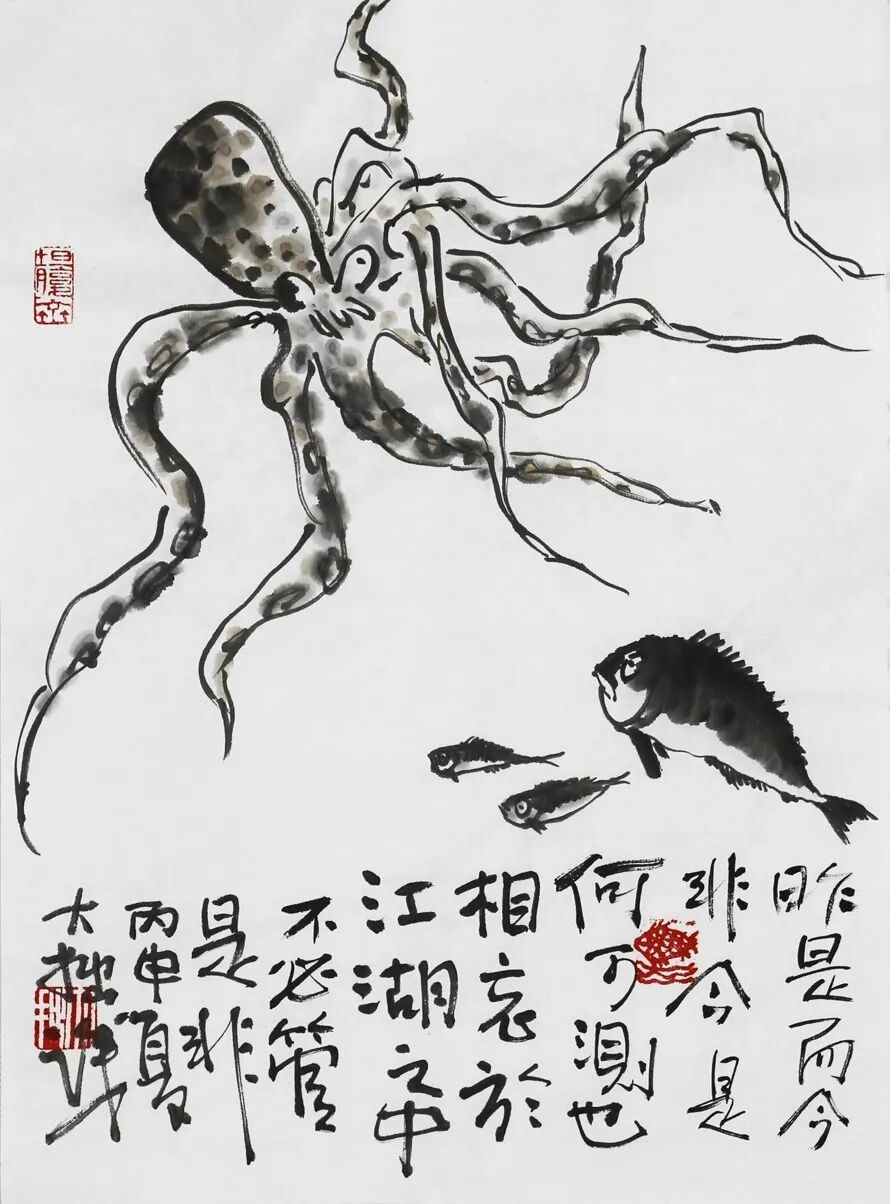 昨是而今
非今是
何可測也
相忘於
江湖之中
不必管
是非
丙申夏
大拙